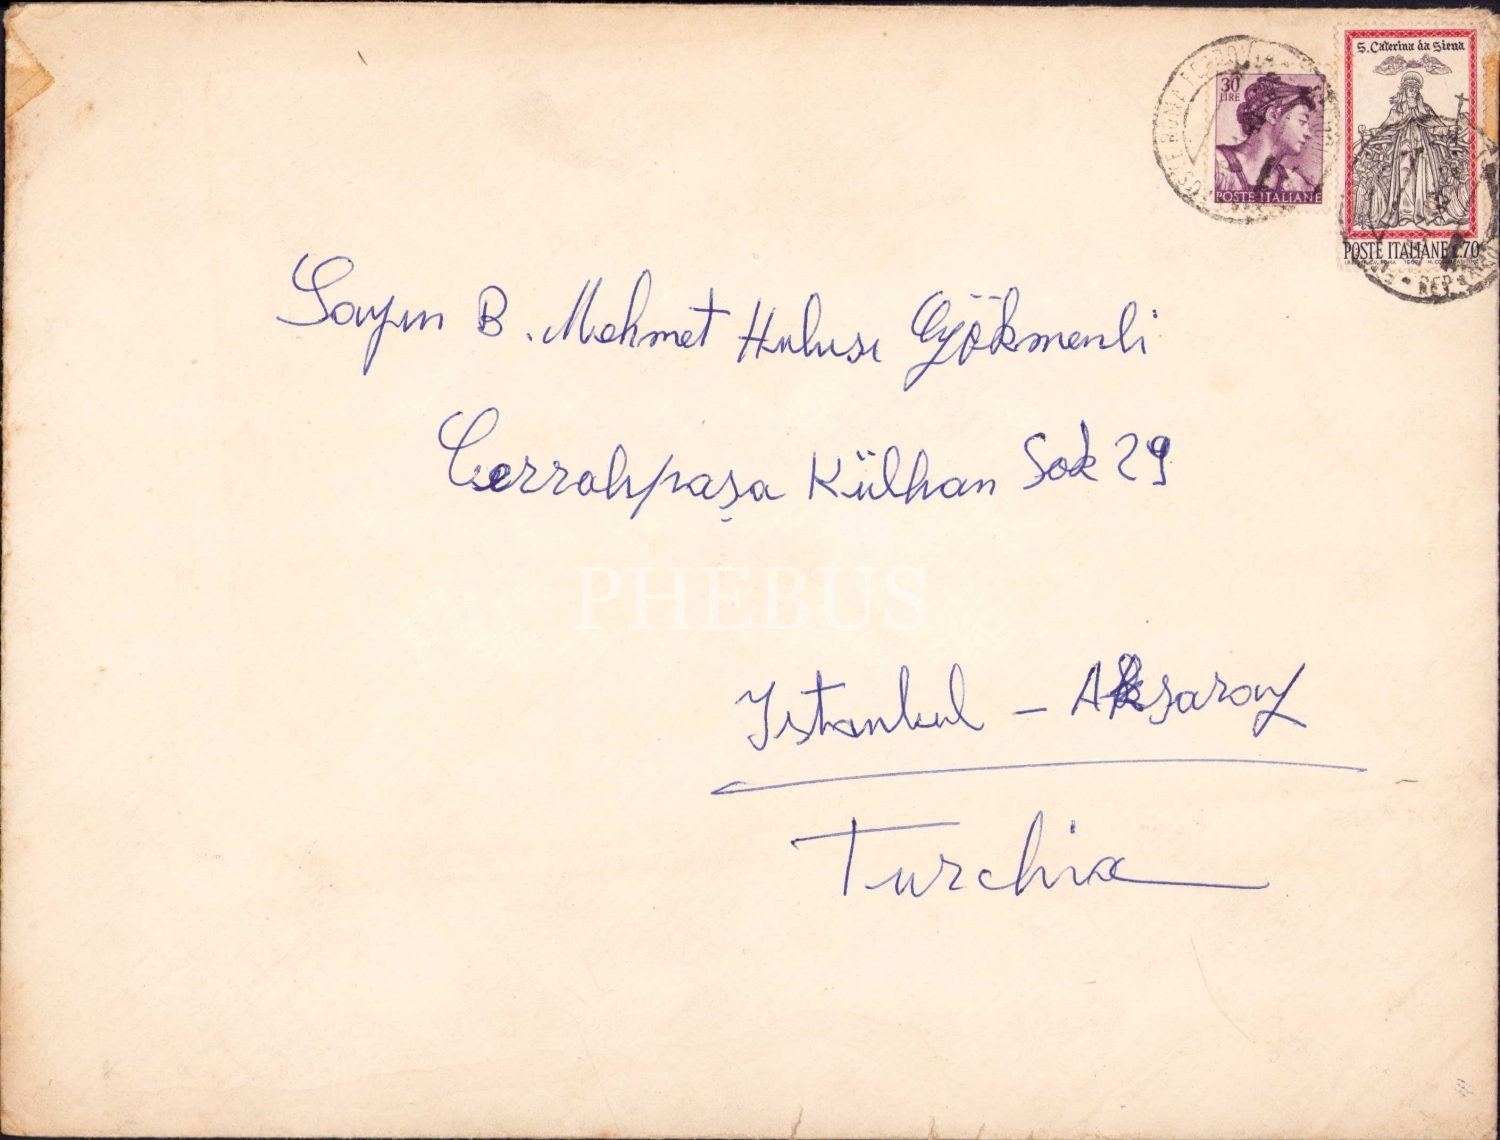 30 LIRE
POSTE ITALIANE
S. Caterina da Siena
POSTE ITALIANE L.70
ROMA FERROVIA
Sayın B. Mehmet Hulusi Gökmenli
Cerrahpaşa Külhan Sok 29
PHEBUS
Istanbul – Aksaray
Turchia